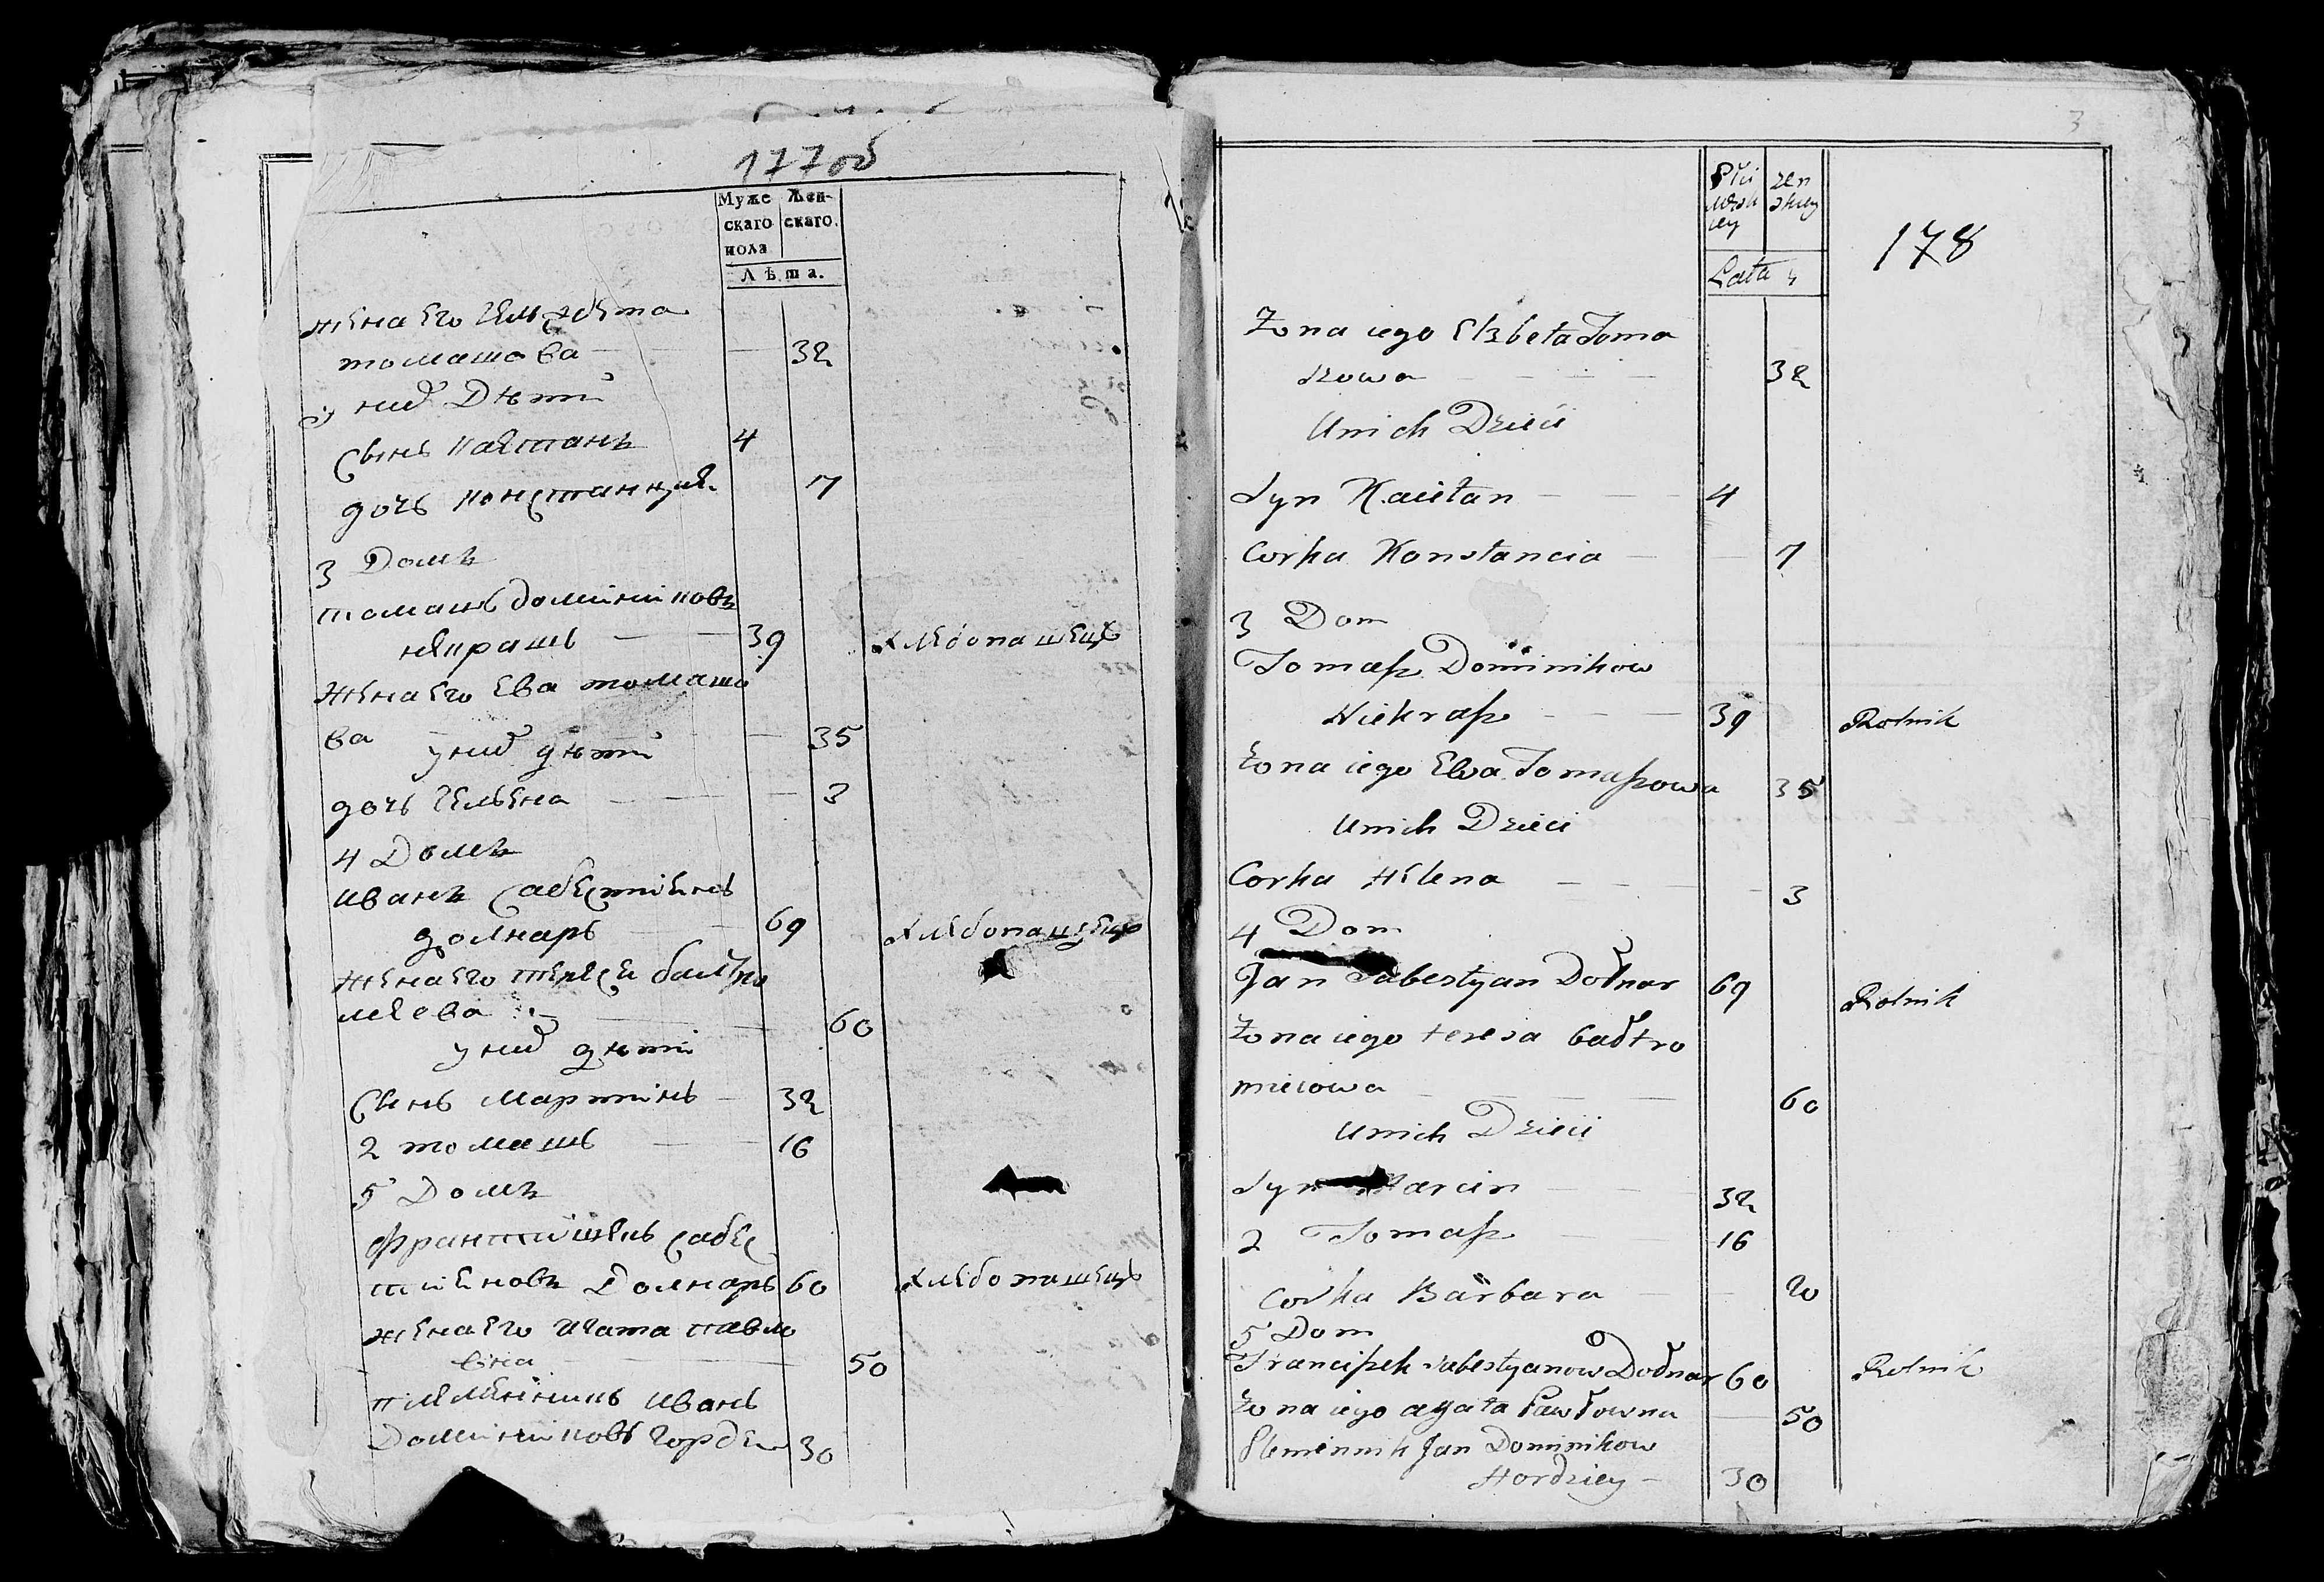 177об
Муже Жен-
скаго скаго.
пола
Лѣта.
жена его Гельжбета
томашова 32
у ниӽ Дѣти
Сынъ каетанъ 4
дочь констанцуя 7
3 Домъ
томашъ доминиковъ
некрашъ 39 хлебопашецъ
жена его Ева томашо
ва 35
у ниӽ дѣти
дочь Гельена 3
4 Домъ
иванъ Сабестиенъ
долнаръ 69 хлебопашецъ
жена его тереса балтро
меева 60
у ниӽ дѣти
Синъ мартинъ 32
2 томашъ 16
5 Домъ
франтишекъ сабес
тиеновъ Долнаръ 60 хлебопашецъ
жена его Агата павло
вна 50
племенникъ иванъ
Доминиковъ Гордей 30
3
178
Płci zen
męsk skiey
iey
Lata
Żona iego Elzbeta Toma
szowa 32
U nich Dzieci
Syn Kaietan 4
Corka Konstancia 7
3 Dom
Tomasz Dominikow
Niekrasz 39 Rolnik
Żona iego Ewa Tomaszowa 35
U nich Dzieci
Corka Helena 3
4 Dom
Jan Sabestyan Dołnar 69 Rolnik
Żona iego teresa bałtro
mieiowa 60
U nich Dzieci
Syn Marcin 32
2 Tomasz 16
Corka Barbara 20
5 Dom
Franciszek Sabestyanow Dołnar 60 Rolnik
Żona iego agata Pawłowna 50
Plemiennik Jan Dominikow
Hordziey 30